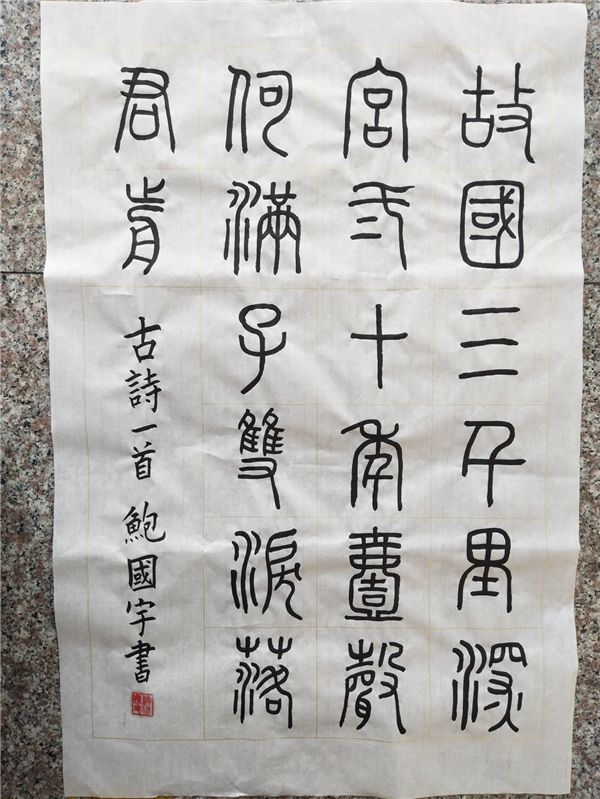 故國三千里深
宮弍十年壹聲
何滿子雙淚落
君前
古詩一首 鮑國宇書